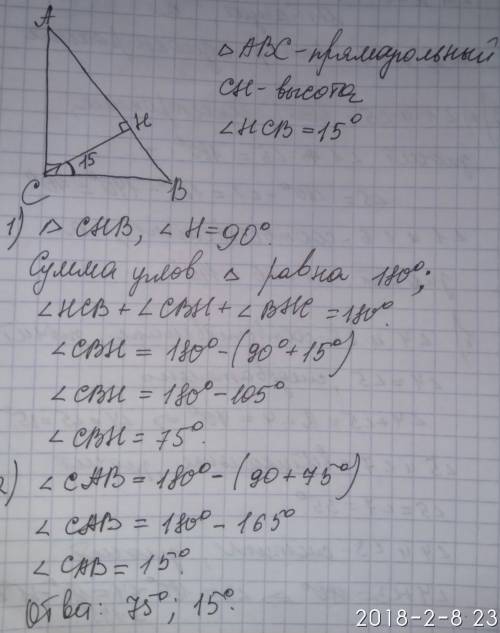 A
H
15
C
B
△ABC-прямарольный
CH-высота
∠HCB=15°
1) △ CHB, ∠H=90°.
Сумма углов △ равна 180°;
∠HCB+∠CBH+∠BHC=180°
∠CBH=180°-(90°+15°)
∠CBH=180°-105°
∠CBH=75°.
2) ∠CAB=180°-(90+75°)
∠CAB=180°-165°
∠CAB=15°.
Ответ: 75°; 15°.
2018-2-8 23